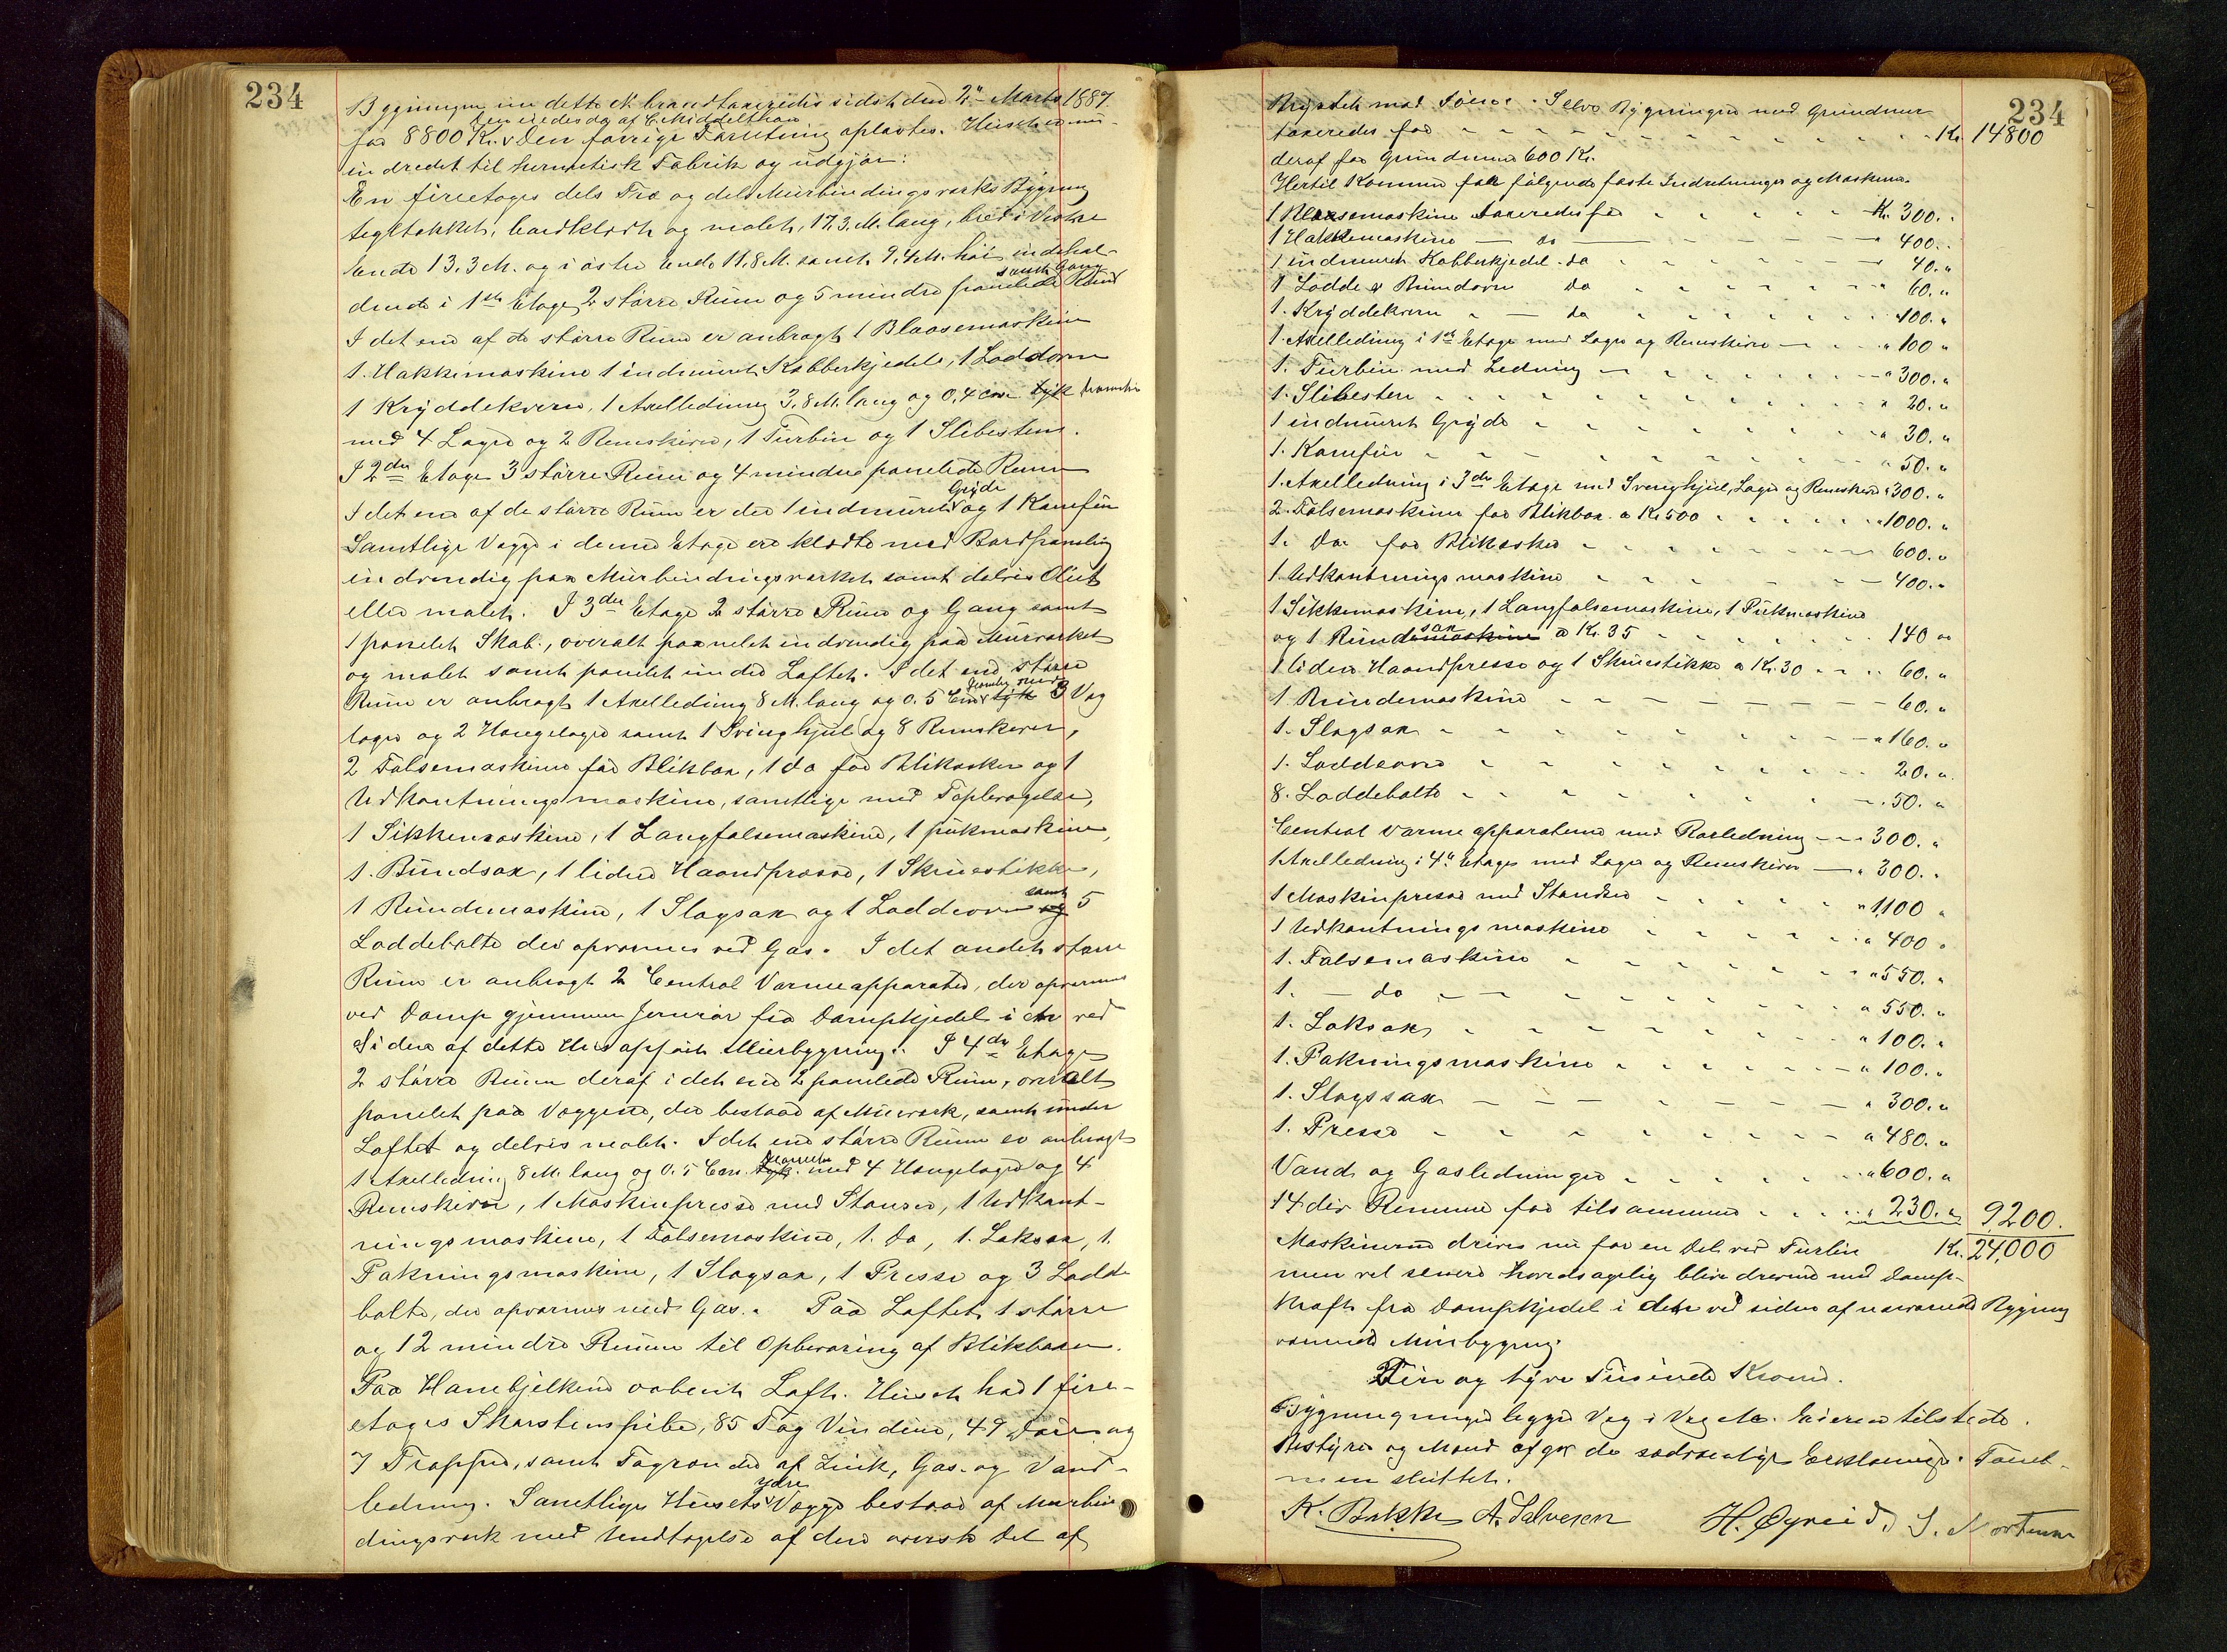 234
Bygningen under dette No brandtaxeredes sidst den 2den Marts 1887
ten endesdag af C Middelthon
for 8800 Kr. v Den forrige Forretning oplæstes. Huset er nu
indredet til hermetisk Fabrik og udgjør:
En fireetages dels Træ og dels Murbindingsverks Bygning
tegltækket, bordklædt og malet, 17,3 M. lang, bred i Vestre
Ende 13,3 M. og i østre Ende 11,8 M. samt 9,4 M. høi indehol-
samt Gang
dende i 1ste Etage 2 større Rum og 5 mindre panelede Rum
I det ene af de større Rum er anbragt 1 Blaasemaskine
1 Hakkemaskine 1 indmuret Kobberkjedel, 1 Loddeovn
1 Kryddekvern, 1 Axelledning 3,8 M. lang og 0,4 cm tyk diameter
med 4 Lagre og 2 Remskiver, 1 Turbin og 1 Slibesten.
I 2den Etage 3 større Rum og 4 mindre panelede Rum
Gryde
I det ene af de større Rum er der 1 indmuret v og 1 Komfur
Samtlige Vægge i denne Etage ere klædte med Bordpaneling
indvendig paa Murbindingsverket samt delvis Oliet
eller malet. I 3die Etage 2 større Rum og Gang samt
1 panelet Skab, overalt paanelet indvendig paa Murværket
og malet samt panelet under Loftet. I det ene større
diameter med
Rum er anbragt 1 Axelledning 8 M. lang og 0.5 Cm v tyk 3 Væg
lagre og 2 Hængelagre samt 1 Svinghjul og 8 Remskiver,
2 Falsemaskiner for Blikbox, 1 do for Blikæsker og 1
Udkantningsmaskine, samtlige med Tapbevægelse,
1 Sikkemaskine, 1 Langfalsemaskine, 1 pukmaskine,
1 Bundsax, 1 liden Haandpresse, 1 Skruestikke,
samt
1 Rundemaskine, 1 Slagsax og 1 Loddeovn og 5
Loddebolte der opvarmes ved Gas. I det andet større
Rum er anbragt 2 Central Varmeapparater, der opvarmes
ved Damp gjennem Jernrør fra Dampkjedel i det ved
Siden af dette Hus opført Murbygning. I 4de Etage
2 større Rum deraf i det ene 2 panelede Rum, overalt
panelet paa Væggene, der bestaar af Murverk, samt under
Loftet og delvis malet. I det ene større Rum er anbragt
diameter
1 Axelledning 8 M. lang og 0.5 Cm. tyk. med 4 Hængelagre og 4
Remskiver, 1 Maskinpresse med Stanser, 1 Udkant-
ningsmaskine, 1 Falsemaskine, 1. do, 1. Laksax, 1.
Pakningsmaskine, 1 Slagsax, 1 Presse og 3 Lodde
bolte, der opvarmes med Gas. Paa Loftet 1 større
og 12 mindre Rumm til Opbevaring af Blikbaxer.
Paa Hanebjelkene aabent Loft. Huset har 1 fire-
etages Skorstenspibe, 85 Fag Vinduer, 49 Døre og
7 Trapper, samt Tagrender af Zink, Gas- og Vand-
ydre
ledning. Samtlige Husets v Vægge bestaar af Murbin
dingsverk med Undtagelse af den øverste Del af
234
Brystet mod Søen. Selve Bygningen med Grundmur
taxeredes for Kr. 14800
deraf for Grundmur 600 Kr.
Hertil kommer for følgende faste Indretninger og Maskiner.
1 Blaasemaskine taxeredes for Kr. 300. "
1 Hakkemaskine do " 400. "
1 indmuret Kobberkjedel do 40. "
1 Lodde & Bundovn do " 60. "
1. Kryddekvern do " 100. "
1. Axelledning i 1ste Etage med Lagre og Remskiver " 100 "
1. Turbin med Ledning " 300. "
1. Slibesten " 20. "
1 indmuret Gryde " 30. "
1. Komfur " 50. "
1. Axelledning i 3die Etage med Svinghjul, Lagre og Remskiver " 300. "
2. Falsemaskiner for Blikbox a Kr 500 " 1000. "
1. Do for Blikæsker 600. "
1. Udkantningsmaskine 400. "
1 Sikkemaskine, 1 Langfalsemaskine, 1 Pukmaskine
sax
og 1 Rundemaskine a Kr. 35 140 "
1 liden Haandpresse og 1 Skruestikke a Kr. 30 60. "
1 Rundemaskine 60. "
1. Slagsax " 160. "
1. Loddeovn 20. "
8. Loddebolte 50. "
Central varmeapparaterne med Rørledning 300. "
1 Axelledning i 4de Etage med Lagre og Remskiver " 300. "
1 Maskinpresse med Stanser " 1,100 "
1 Udkantningsmaskine " 400 "
1. Falsemaskine " 550. "
1. — do " 550. "
1. Laksax " 100. "
1. Pakningsmaskine " 100. "
1. Slagssax " 300. "
1. Presse " 480. "
Vand og Gasledninger " 600. "
14 div Remme for tilsammen " 230. " 9200.
Maskinerne drives nu for en Del ved Turbin Kr. 24,000
men vil senere hovedsagelig blive drevne med Damp-
kraft fra Dampkjedel i det ved siden af nærværende Bygning
værende Murbygning.
Fire og tyve Tusinde Kroner.
Bygningen ligger Væg i Væg Eieren tilstede.
Bestyrer og Mænd afgav de sædvanlige Erklæringer. Forret-
ningen sluttet.
K. Bakke A. Salvesen H. Øgreid, S. Mortensen